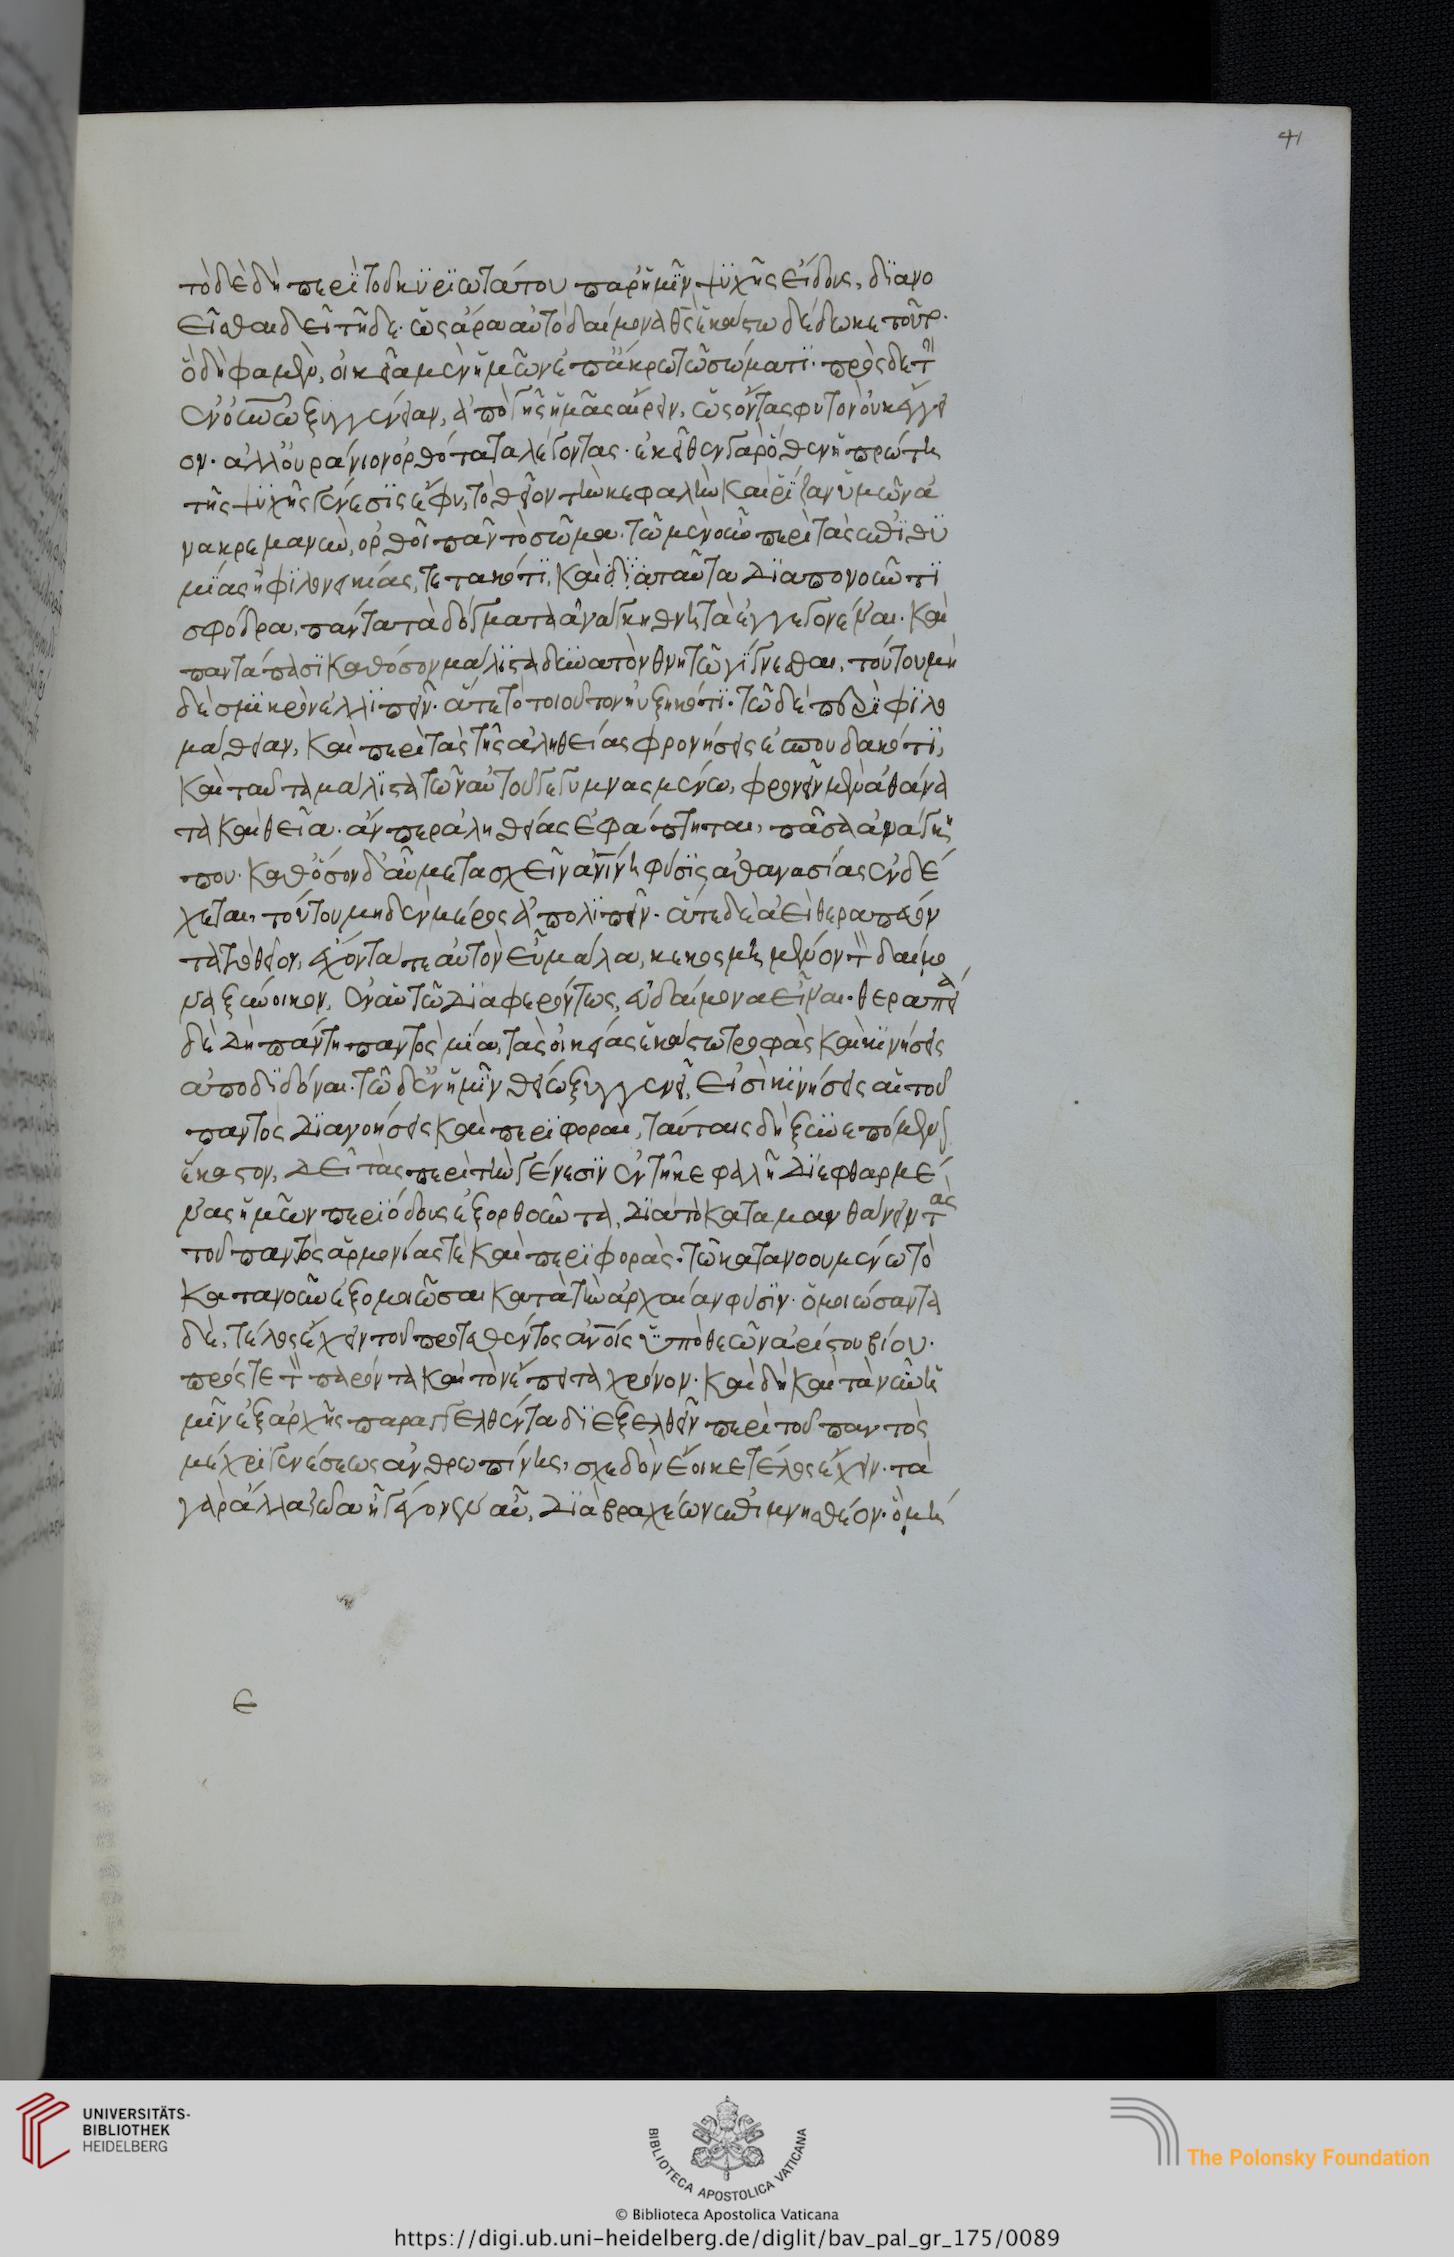 41
τὸ δὲ δὴ περὶ τοῦ κυριωτάτου παρ' ἡμῖν ψυχῆς εἴδους, διανο
εῖσθαι δεῖ τῆδε· ὡς ἄρα αὐτὸ δαίμονα θς ἑκάστω δέδωκε τοῦτο·
ὃ δή φαμεν, οἰκεῖν μὲν ἡμῶν ἐπ' ἄκρω τῶ σώματι· πρὸς δὲ τὴν
ἐν οὐνω ξυγγένειαν, ἀπὸ γῆς ἡμᾶς αἴρειν, ὡς ὄντας φυτὸν οὐκ ἔγγει
ον· ἀλλ' οὐράνιον ὀρθότατα λέγοντας· ἐκεῖθεν γὰρ ὅθεν ἡ πρώτη
τῆς ψυχῆς γένεσις ἔφυ, τὸ θεῖον τὴν κεφαλὴν καὶ ῥίζαν ὑμῶν ἀ
νακρεμανὺν, ὀρθοῖ πᾶν τὸ σῶμα· τῶ μὲν οὖν περὶ τὰς ἐπιθυ
μίας ἢ φιλονεικίας, τετακότι, καὶ διαπαῦτα διαπονοῦντι
σφόδρα, πάντα τὰ δόγματα ἀνάγκη θνητὰ ἐγγεγονέναι· καὶ
παντάπασι καθόσον μάλιστα δυνατὸν θνητῶ γίγνεσθαι, τούτου μὴ
δὲ σμικρὸν ἐλλίπειν· ἅτε τὸ τοιοῦτον ηὐξηκότι· τῶ δὲ περὶ φιλο
μάθειαν, καὶ περὶ τὰς τῆς ἀληθείας φρονήσεις ἐσπουδακότι,
καὶ ταῦτα μάλιστα τῶν αὐτοῦ γεγυμνασμένω, φρονεῖν μὲν ἀθάνα
τα καὶ θεῖα· ἄν περ ἀληθείας ἐφάπτηται, πᾶσα ἀνάγκη
που· καθόσον δ' αὖ μετασχεῖν ἀνίνη φύσις ἀθανασίας ἐνδέ
χεται, τούτου μηδὲν μέρος ἀπολίπειν· ἅτε δὲ ἀεὶ θεραπεύον
τα τὸ θεῖον, ἔχοντά τε αὐτὸν εὖ μάλα, κεκοσμημένον τὸν δαίμο
να ξύνοικον, ἐν αὑτῶ διαφερόντως, εὐδαίμονα εἶναι· θεραπεία
δὲ δὴ πάντη παντὸς μία, τὰς οἰκείας ἑκάστω τροφὰς καὶ κινήσεις
ἀποδιδόναι· τῶ δ' ἐν ἡμῖν θείω ξυγγενεῖ, εἰσὶ κινήσεις αἱ τοῦ
παντὸς διανοήσεις καὶ περιφοραὶ, ταύταις δὴ ξυνεπόμενον
ἕκαστον, δεῖ τὰς περὶ τὴν γένεσιν ἐν τῆ κεφαλῆ διεφθαρμέ
νας ἡμῶν περιόδους ἐξορθοῦντα, διὰ τὸ καταμανθάνειν τὰς
τοῦ παντὸς ἁρμονίας τὲ καὶ περιφορὰς· τῶ κατανοουμένω τὸ
κατανοοῦν ἐξομοιῶσαι κατὰ τὴν ἀρχαίαν φύσιν· ὁμοιώσαντα
δὲ, τέλος ἔχειν τοῦ προτεθέντος ἀνοίς ὑπὸ θεῶν ἀρίστου βίου·
πρός τε τὸν παρόντα καὶ τὸν ἔπειτα χρόνον· καὶ δὴ καὶ τὰ νῦν ἡ
μῖν ἐξ ἀρχῆς παραγγελθέντα διεξελθεῖν περὶ τοῦ παντὸς
μέχρι γενέσεως ἀνθρωπίνης, σχεδὸν ἔοικε τέλος ἔχειν· τὰ
γὰρ ἄλλα ζῶα ἧ γέγονεν αὖ, διὰ βραχέων ἐπιμνηστέον· ὃ μή
ϵ
UNIVERSITÄTS-
BIBLIOTHEK
HEIDELBERG
BIBLIOTECA APOSTOLICA VATICANA
The Polonsky Foundation
© Biblioteca Apostolica Vaticana
https://digi.ub.uni-heidelberg.de/diglit/bav_pal_gr_175/0089